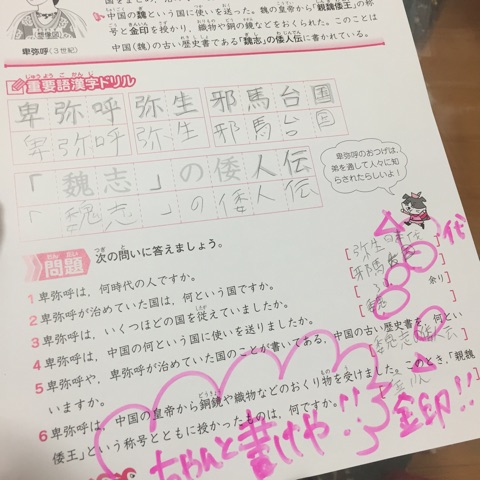 中国の魏という国に使いを送った。魏の皇帝から「親魏倭王」の称
号と金印を授かり、織物や銅の鏡などをおくられた。このことは
中国(魏)の古い歴史書である「魏志」の倭人伝に書かれている。
卑弥呼(3世紀)
重要語漢字ドリル
卑弥呼 弥生 邪馬台国
卑弥呼 弥生 邪馬台国
「魏志」の倭人伝
「魏志」の倭人伝
卑弥呼のおつげは、
弟を通して人々に知
らされたらしいよ!
問題 次の問いに答えましょう。
1 卑弥呼は、何時代の人ですか。
2 卑弥呼が治めていた国は、何という国ですか。
邪馬
3 卑弥呼は、いくつほどの国を従えていましたか。
余り
4 卑弥呼は、中国の何という国に使いを送りましたか。
5 卑弥呼や、卑弥呼が治めていた国のことが書いてある、中国の古い歴史書を、何とい
いますか。
6 卑弥呼は、中国の皇帝から銅鏡や織物などのおくり物を受けました。このとき、「親魏
倭王」という称号とともに授かったものは、何ですか。
代
ちゃんと書けや!!
金印!!